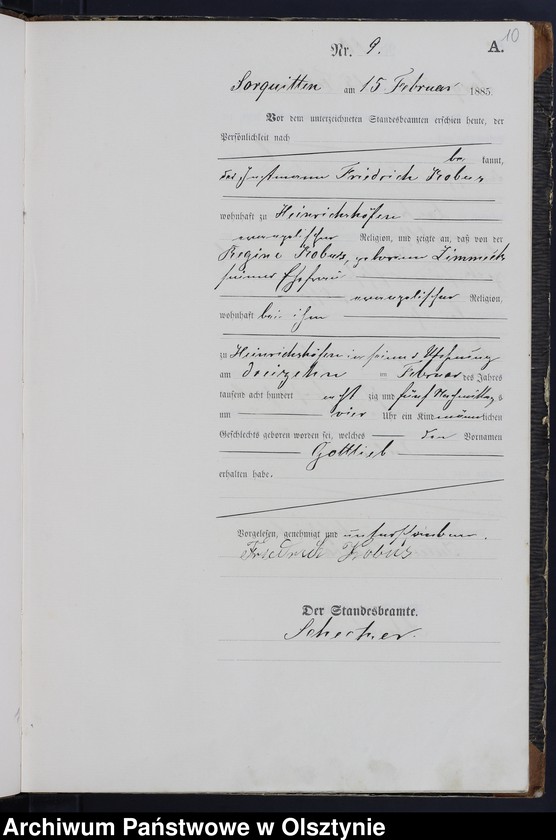 10
Nr. 9.
A.
Sorquitten am 15 Februar 1885
Vor dem unterzeichneten Standesbeamten erschien heute, der
Persönlichkeit nach
be kannt,
der Instmann Friedrich Kobus
wohnhaft zu Heinrichshöfen
evangelischer Religion, und zeigte an, daß von der
Regine Kobus, geborenen Zimmeck
seiner Ehefrau
evangelischer Religion,
wohnhaft bei ihm
zu Heinrichshöfen in seiner Wohnung
am dreizehn ten Februar des Jahres
tausend acht hundert acht zig und fünf Nachmittags
um vier Uhr ein Kind männlichen
Geschlechts geboren worden sei, welches den Vornamen
Gottlieb
erhalten habe.
Vorgelesen, genehmigt und unterschrieben.
Friedrich Kobus
Der Standesbeamte.
Archiwum Państwowe w Olsztynie